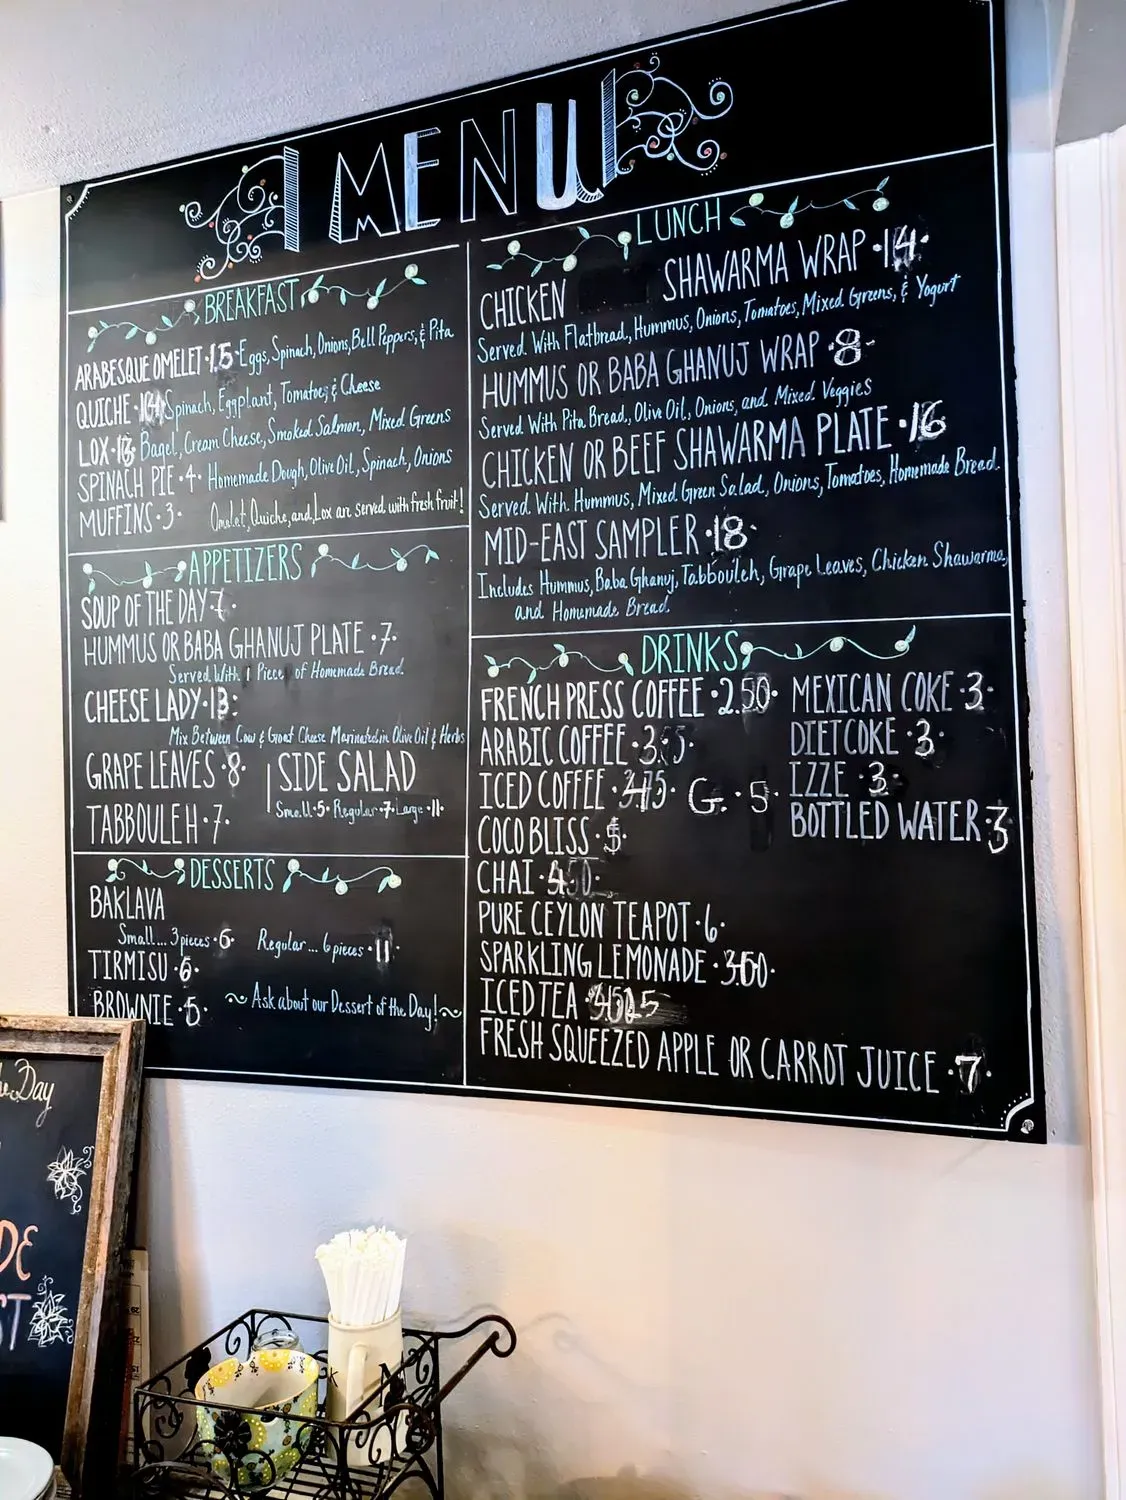 MENU
BREAKFAST
ARABESQUE OMELET · 15 · Eggs, Spinach, Onions, Bell Peppers, & Pita
QUICHE · 14 Spinach, Eggplant, Tomatoes & Cheese
LOX · Bagel, Cream Cheese, Smoked Salmon, Mixed Greens
SPINACH PIE · 4 · Homemade Dough, Olive Oil, Spinach, Onions
MUFFINS · 3 ·
Omelet, Quiche, and Lox are served with fresh fruit!
APPETIZERS
SOUP OF THE DAY · 7 ·
HUMMUS OR BABA GHANUJ PLATE · 7 ·
Served With 1 Piece of Homemade Bread.
CHEESE LADY · 13 ·
Mix Between Cow & Goat Cheese Marinated in Olive Oil & Herbs
GRAPE LEAVES · 8 ·
TABBOULEH · 7 ·
SIDE SALAD
Small · 5 · Regular · 7 · Large · 11 ·
DESSERTS
BAKLAVA
Small... 3 pieces · 6 · Regular... 6 pieces · 11 ·
TIRMISU · 6 ·
BROWNIE · 5 ·
~ Ask about our Dessert of the Day! ~
LUNCH
CHICKEN SHAWARMA WRAP · 14 ·
Served With Flatbread, Hummus, Onions, Tomatoes, Mixed Greens, & Yogurt
HUMMUS OR BABA GHANUJ WRAP · 8 ·
Served With Pita Bread, Olive Oil, Onions, and Mixed Veggies
CHICKEN OR BEEF SHAWARMA PLATE · 16
Served With Hummus, Mixed Green Salad, Onions, Tomatoes, Homemade Bread.
MID-EAST SAMPLER · 18 ·
Includes Hummus, Baba Ghanuj, Tabbouleh, Grape Leaves, Chicken Shawarma,
and Homemade Bread.
DRINKS
FRENCH PRESS COFFEE · 2.50 ·
ARABIC COFFEE ·
ICED COFFEE · G. · 5 ·
COCO BLISS · 5 ·
CHAI ·
PURE CEYLON TEAPOT · 6 ·
SPARKLING LEMONADE ·
ICED TEA ·
FRESH SQUEEZED APPLE OR CARROT JUICE · 7 ·
MEXICAN COKE · 3 ·
DIET COKE · 3 ·
IZZE · 3 ·
BOTTLED WATER · 3
Day